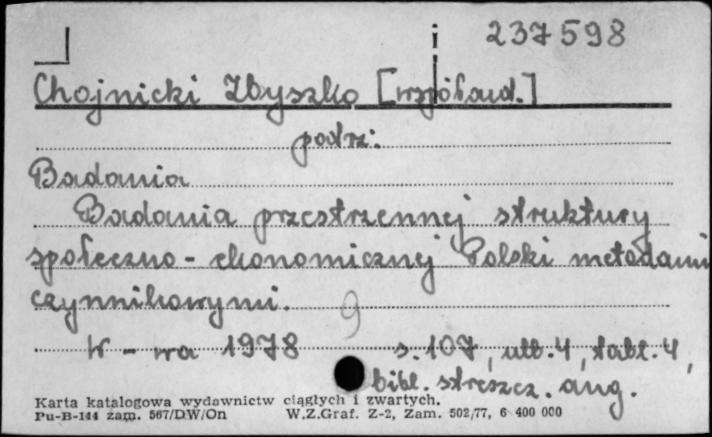 237598
Chojnicki Zbyszko [współaud.]
patrz:
Badania
Badania przestrzennej struktury
społeczno-ekonomicznej Polski metodami
czynnikowymi.
9
W-wa 1978 s. 107, ulb. 4, tabl. 4,
bibl. streszcz. ang.
Karta katalogowa wydawnictw ciągłych i zwartych.
Pu-B-144 zam. 567/DW/On W.Z.Graf. Z-2, Zam. 502/77, 6 400 000